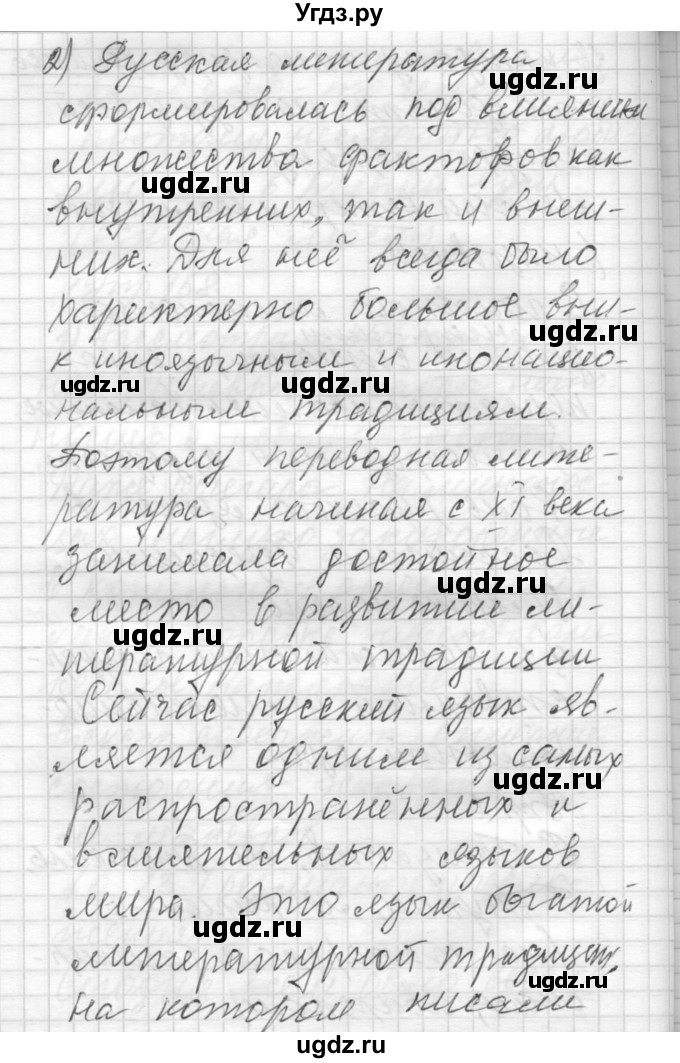 Угдз.ру
2) Русская литература
ugdz.ru
сформировалась под влиянием
ugdz.ru
множества факторов как
ugdz.ru
внутренних, так и внеш-
них. Для неё всегда было
характерно большое вни-
ugdz.ru
к иноязычным и инонацио-
ugdz.ru ugdz.ru
нальным традициям.
Поэтому переводная лите-
ратура начиная с XI века
занимала достойное
ugdz.ru
место в развитии ли-
ugdz.ru
тературной традиции
Сейчас русский язык яв-
ляется одним из самых
ugdz.ru
распространённых и
влиятельных языков
мира. Это язык богатой
ugdz.ru
литературной традиции,
ugdz.ru
на котором писали
ugdz.ru